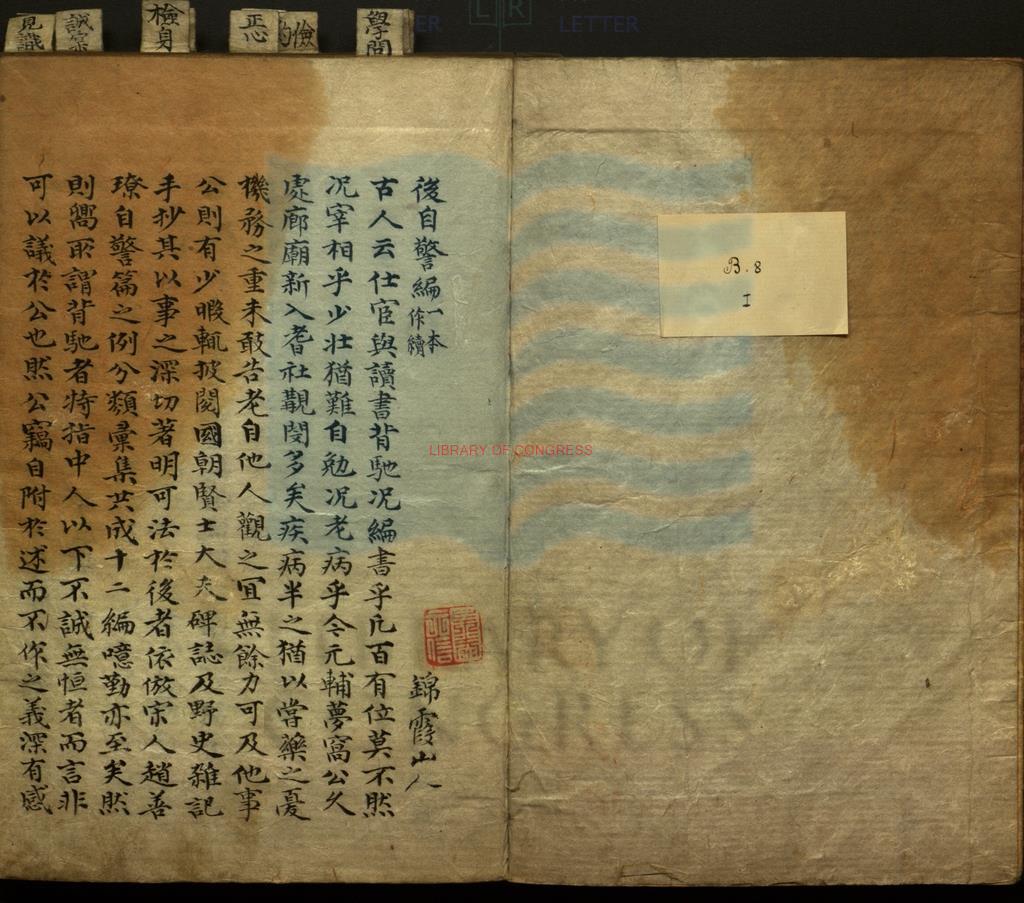 學問
儉約
正心
檢身
誠實
見識
LETTER
LR
LETTER
B. 8
I
LIBRARY OF CONGRESS
後自警編一本作續
錦霞山人
古人云仕宦與讀書背馳况編書乎凡百有位莫不然
况宰相乎少壯猶難自勉况老病乎今元輔夢窩公久
處廊廟新入耆社覯閔多矣疾病半之猶以嘗藥之憂
機務之重未敢告老自他人觀之宜無餘力可及他事
公則有少暇輒披閱國朝賢士大夫碑誌及野史雜記
手抄其以事之深切著明可法於後者依倣宋人趙善
璙自警篇之例分類彙集共成十二編噫勤亦至矣然
則嚮所謂背馳者特指中人以下不誠無恒者而言非
可以議於公也然公竊自附於述而不作之義深有感